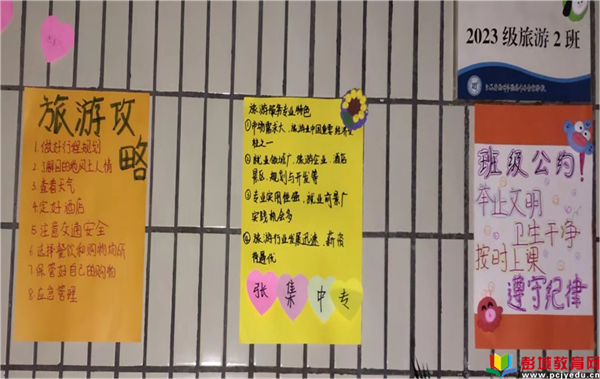 旅游攻略
1.做好行程规划
2.了解目的地风土人情
3.查看天气
4.定好酒店
5.注意交通安全
6.选择餐饮和购物娱乐
7.保管好自己的购物
8.应急管理
旅游服务专业特色
①市场需求大,旅游业中国重要经济支
柱之一
②就业领域广,旅游企业、酒店
景区、规划与开发等
③专业实用性强,就业前景广
实践机会多
④旅游行业发展迅速,薪资
待遇优
张集中专
2023级旅游2班
班级公约!
举止文明
卫生干净
按时上课
遵守纪律
彭城教育网
www.pcjyedu.cn